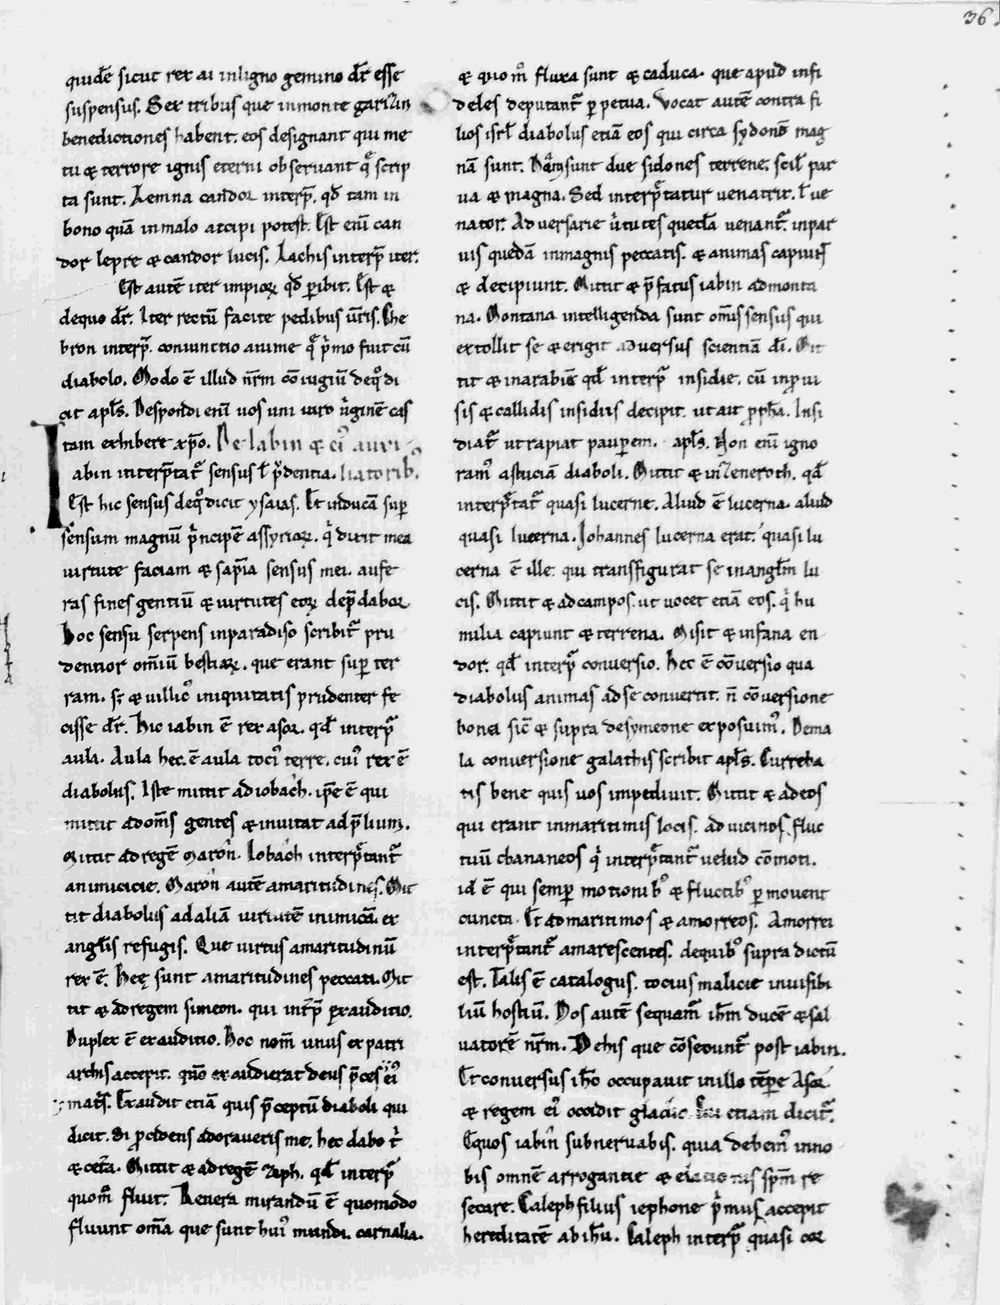 36.
quidē sicut rex ai inligno gemino dr̄ esse
suspensus. Sex tribus que inmonte garizin
benedictiones habent. eos designant qui me
tu ⁊ terrore ignis eterni observant q̄ scrip
ta sunt. Lemna candor interp̄. qd̄ tam in
bono quā inmalo accipi potest. Est enī can
dor lepre ⁊ candor lucis. Lachis interp̄ iter.
Est autē iter impioꝝ qd̄ ꝑibit. Est ⁊
dequo dr̄. Iter rectū facite pedibus ūris. Che
bron interp̄. coniunctio anime q̄ p̄mo fuit cū
diabolo. Modo ē illud nr̄m cōiugiū deq̊ di
cit apl̄s. Despondi enī vos uni viro v̓ginē cas
tam exhibere xp̄o. De Iabin ⁊ ei᷒ auxi
abin interp̄tat᷑ sensus ł p̄dentia. liatorib᷒
Est hic sensus deq̊ dicit ysaias. Et inducā suꝑ
sensum magnū p̄ncipē assyrioꝝ. q̓ dicit mea
virtute faciam ⁊ sap̄ia sensus mei. aufe
ras fines gentiū ⁊ virtutes eoꝝ dep̄dabor
hoc sensu serpens inparadiso scribit᷑ pru
dentior om̄iū bestiaꝝ. que erant suꝑ ter
ram. s; ⁊ villic᷒ iniquitatis prudenter fe
cisse dr̄. Hic iabin ē rex asor. qd̄ interp̄
aula. Aula hec ē aula toci᷒ terre. cui᷒ rex ē
diabolus. Iste mittit ad iobach. ip̄e ē qui
mittit ad om̄s gentes ⁊ invitat ad p̄lium.
Mittit ad regē maron. Iobach interp̄tant᷑
inimicicie. Maron autē amaritudines. Mit
tit diabolus ad aliā virtutē inimicā ex
angl̄is refugis. Que virtus amaritudinū
rex ē. Hee sunt amaritudines peccati. Mit
tit ⁊ ad regem simeon. qui int̄p̄ exauditio.
Duplex ē exauditio. Hoc nom̄ unus ex patri
archis accepit. quō exaudierat deus p̄ces ei᷒
mat̄s. Exaudit etiā quis p̄ceptū diaboli qui
dicit. Si ꝓcidens adoraveris me. hec dabo t̓
⁊ cet̄a. Mittit ⁊ ad regē ziph. qd̄ interp̄
quom̊ fluit. Revera mirandū ē quomodo
fluunt om̄a que sunt hui᷒ mundi. carnalia.
⁊ quom̊ fluxa sunt ⁊ caduca. que apud infi
deles deputant᷑ ꝑpetua. Vocat autē contra fi
lios isrl̄ diabolus etiā eos qui circa sydonē mag
nā sunt. Nā sunt due sidones terrene. scil̄ par
va ⁊ magna. Sed interp̄tatur venatrix. ł ve
nator. Adversarie v̓tutes quedā venant᷑. inpar
vis quedā inmagnis peccatis. ⁊ animas capiunt
⁊ decipiunt. Mittit ⁊ p̄fatus iabin ad monta
na. Montana intelligenda sunt om̄s sensus qui
extollit se ⁊ erigit adversus scientiā dī. Mit
tit ⁊ inarabiē qd̄ interp̄ insidie. cū inprovi
sis ⁊ callidis insidiis decipit. ut ait ꝓph̄a. Insi
diat᷑ ut rapiat pauꝑem. apl̄s. Non enī igno
ram᷒ astuciā diaboli. Mittit ⁊ in Ceneroth. qd̄
interp̄tat᷑ quasi lucerne. Aliud ē lucerna. aliud
quasi lucerna. Iohannes lucerna erat. quasi lu
cerna ē ille. qui transfigurat se inangl̄m lu
cis. Mittit ⁊ ad campos. ut vocet etiā eos. q̓ hu
milia capiunt ⁊ terrena. Misit ⁊ infana en
dor. qd̄ interp̄ conversio. Hec ē cōversio qua
diabolus animas ad se convertit. n̄ cōversione
bona. sic̄ ⁊ supra desymeone exposuim᷒. Dema
la conversione galathis scribit apl̄s. Currebā
tis bene quis vos impedivit. Mittit ⁊ ad eos
qui erant inmaritimis locis. ad vicinos fluc
tuū chananeos q̓ interp̄tant᷑ velud cōmoti.
id ē qui semꝑ motionib᷒ ⁊ fluctib᷒ ꝑmovent
cuncta. Et ad maritimos ⁊ amorreos. Amorrei
interp̄tant᷑ amarescentes. dequib᷒ supra dictū
est. Talis ē catalogus. tocius malicie invisibi
liū hostiū. Nos autē sequam᷒ ih̄m ducē ⁊ sal
vatorē nr̄m. De his que cōsecunt᷑ post iabin.
Et conversus ih̄c occupavit inillo tēpore Asor
⁊ regem ei᷒ occidit gladio. Cui etiam dicit᷑.
Equos iabin subnervabis. quia debem᷒ inno
bis omnē arrogantie ⁊ elationis sp̄m re
secare. Caleph filius iephone p̄mus accepit
hereditatē ab ih̄u. Caleph interp̄ quasi cor